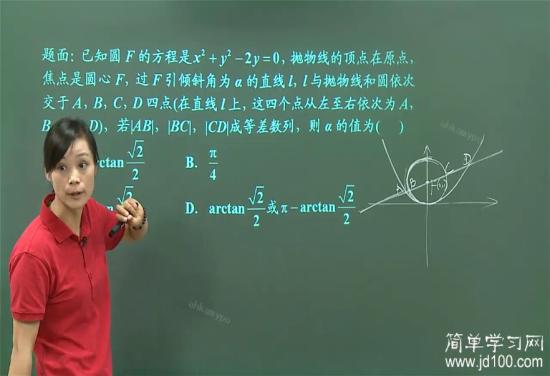 题面:已知圆 F 的方程是 x²+y²-2y=0,抛物线的顶点在原点,
焦点是圆心 F,过 F 引倾斜角为 α 的直线 l,l 与抛物线和圆依次
交于 A,B,C,D 四点(在直线 l 上,这四个点从左至右依次为 A,
B D),若|AB|,|BC|,|CD|成等差数列,则 α 的值为( )
ctan √2/2 B. π/4
D. arctan √2/2 或 π-arctan √2/2
A B F C D
简单学习网
www.jd100.com